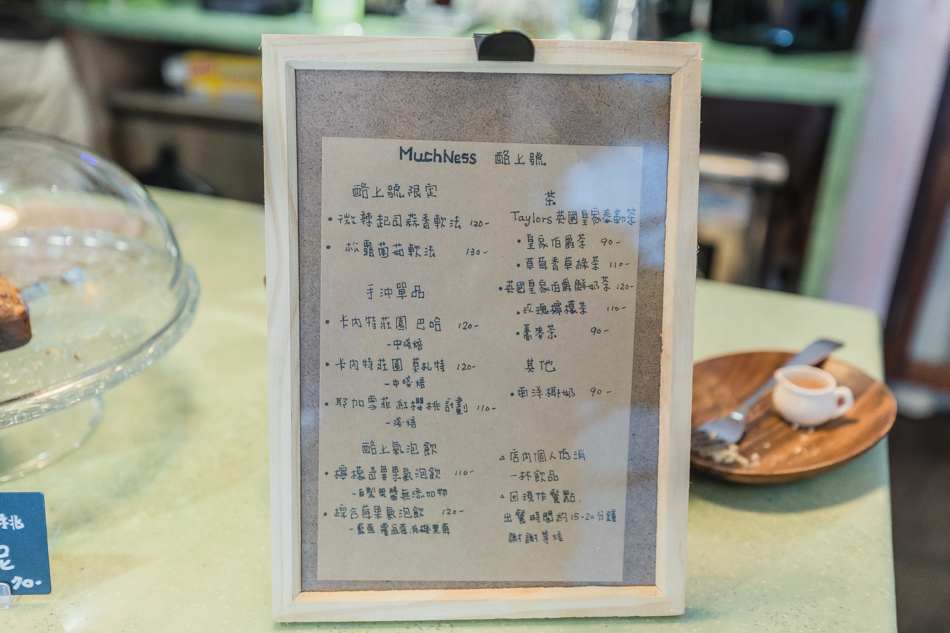 MuchNess 酪上號
酪上號限定
• 微辣起司蒜香軟法 120-
• 松露菌菇軟法 130-
手沖單品
• 卡內特莊園 巴哈 120-
-中淺焙
• 卡內特莊園 莫札特 120-
-中淺焙
• 耶加雪菲 紅櫻桃計劃 110-
-淺焙
酪上氣泡飲
• 檸檬百里果氣泡飲 110-
-自製果醬無添加物
• 綜合莓果氣泡飲 120-
茶
Taylors 英國皇家泰勒茶
• 皇家伯爵茶 90-
• 草莓香草綠茶 110-
• 英國皇家伯爵鮮奶茶 120-
• 玫瑰檸檬茶 110-
• 蕎麥茶 90-
其他
• 南洋椰奶 90-
△ 店內個人低消
一杯飲品
△ 因現作餐點,
出餐時間約15-20分鐘
謝謝等候
桃
尼
70-